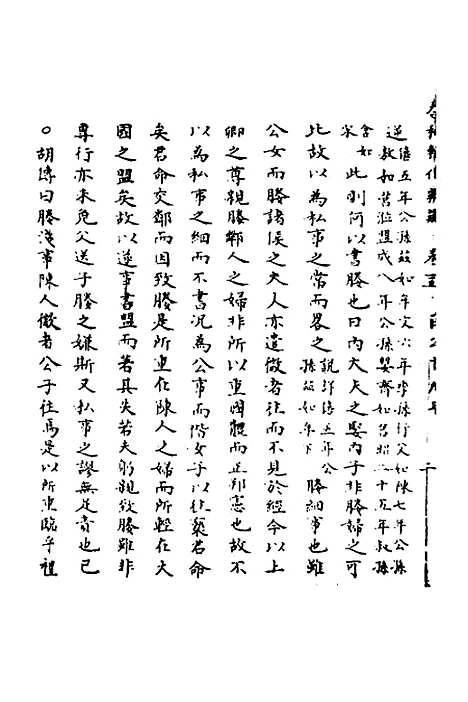 逆僖五年公孫茲如牟文六年季孫行父如陳七年公孫
敖如莒涖盟成八年公孫嬰齊如莒昭二十五年叔孫
舍如宋
此則何以書媵也曰內大夫之娶內子非媵婦之可
比故以為私事之常而畧之說詳僖五年公孫茲如牟下媵細事也雖
公女而媵諸侯之夫人亦遣微者往而不見於經今以上
卿之尊親媵鄰人之婦非所以重國體而正邦憲也故不
以為私事之細而不書況為公事而偕女子以往褻君命
矣君命交鄰而因致媵是所重在陳人之婦而所輕在大
國之盟矣故以遂事書盟而著其失若夫躬親致媵雖非
尊行亦未免父送子媵之嫌斯又私事之謬無足責也已
○胡傳曰媵淺事陳人微者公子往焉是以所重臨乎禮